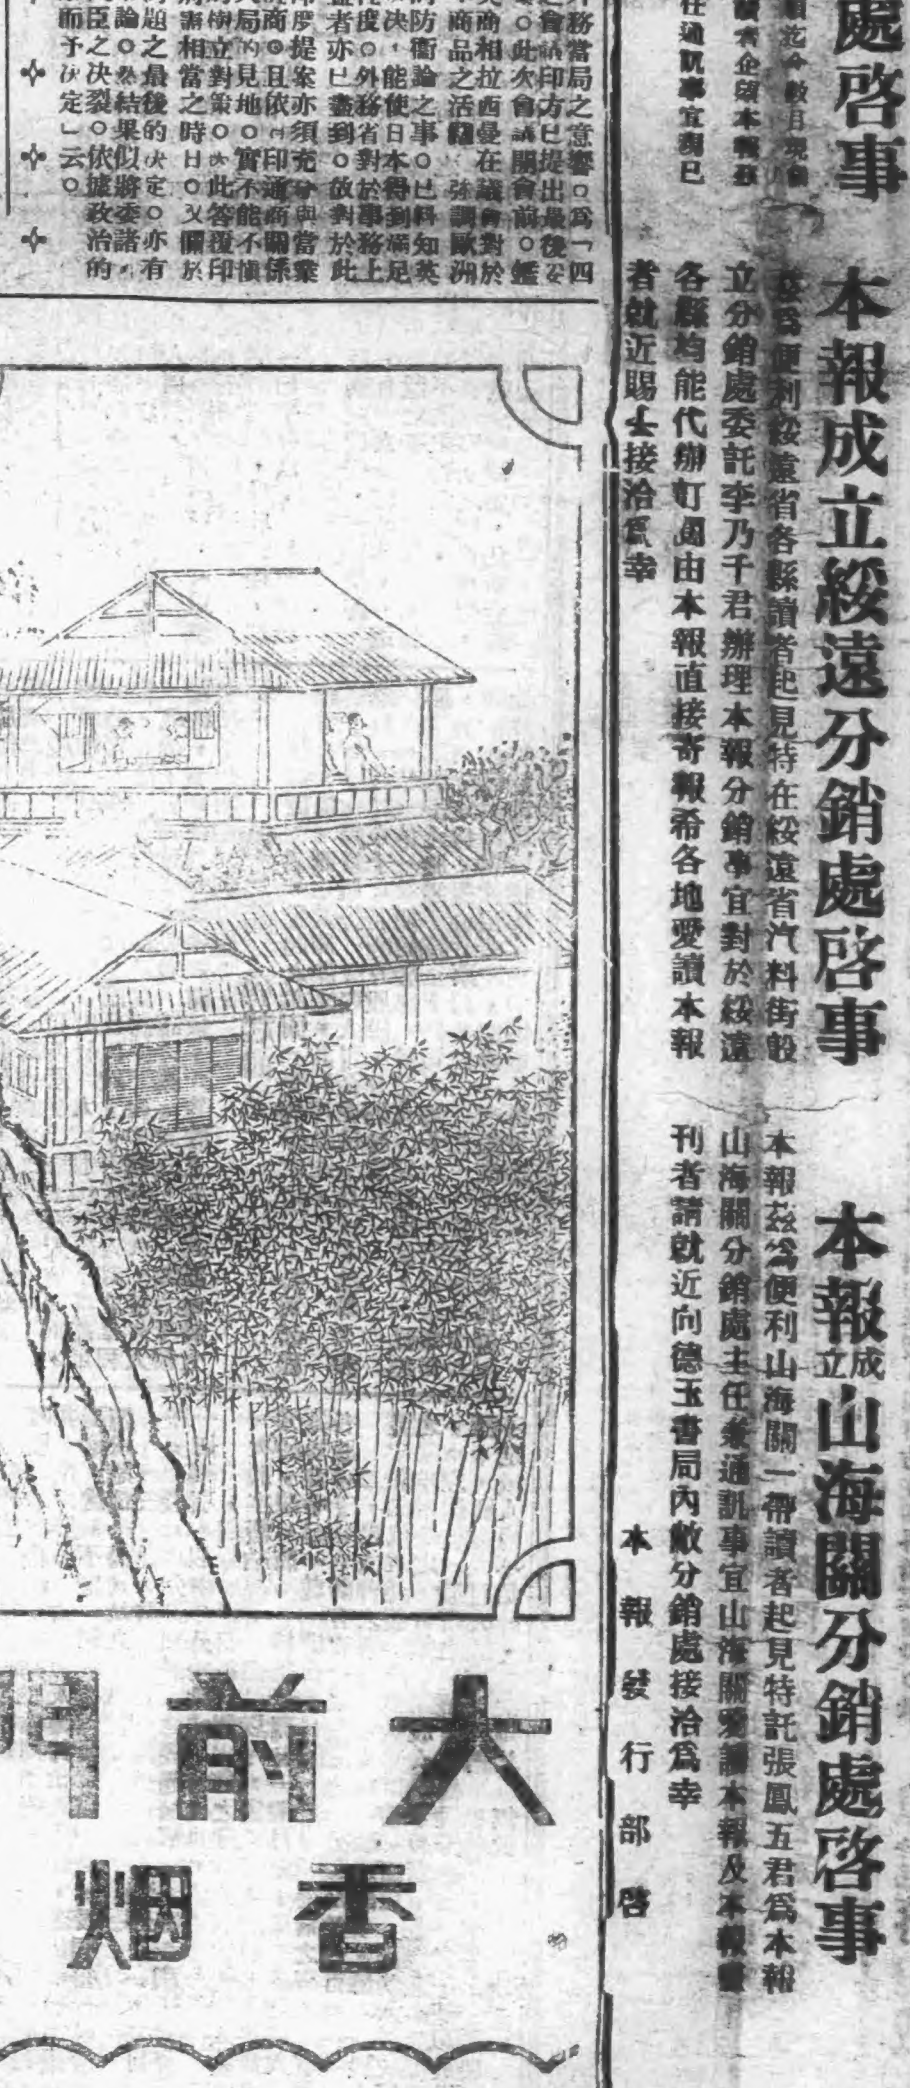 處啓事
本報成立綏遠分銷處啓事
茲爲便利綏遠省各縣讀者起見特在綏遠省汽料街設
立分銷處委託李乃千君辦理本報分銷事宜對於綏遠
各縣均能代辦訂閱由本報直接寄報希各地愛讀本報
者就近賜 接洽爲幸
本報成立山海關分銷處啓事
本報茲爲便利山海關一帶讀者起見特託張鳳五君爲本報
山海關分銷處主任兼通訊事宜山海關愛讀本報及本報
刊者請就近向德玉書局內敝分銷處接洽爲幸
本報發行部啓
務當局之意響。爲「四
會議印方已提出最後
。此次會議開會前。
商相拉西曼在議會對於
商品之活躍 強調歐洲
防衝論之事。已料知英
决，能使日本得到滿足
度。外務省對於事務上
者亦已盡到。故對於此
提案亦須充分與當業
商。且依日印通商關係
局的見地。實不能不慎
樹立對策。 此答覆印
需相當之時日。又關於
題之最後的决定。亦有
論。 結果似將委諸
臣之决裂。依據政治的
而予决定」云。
大前門
香烟